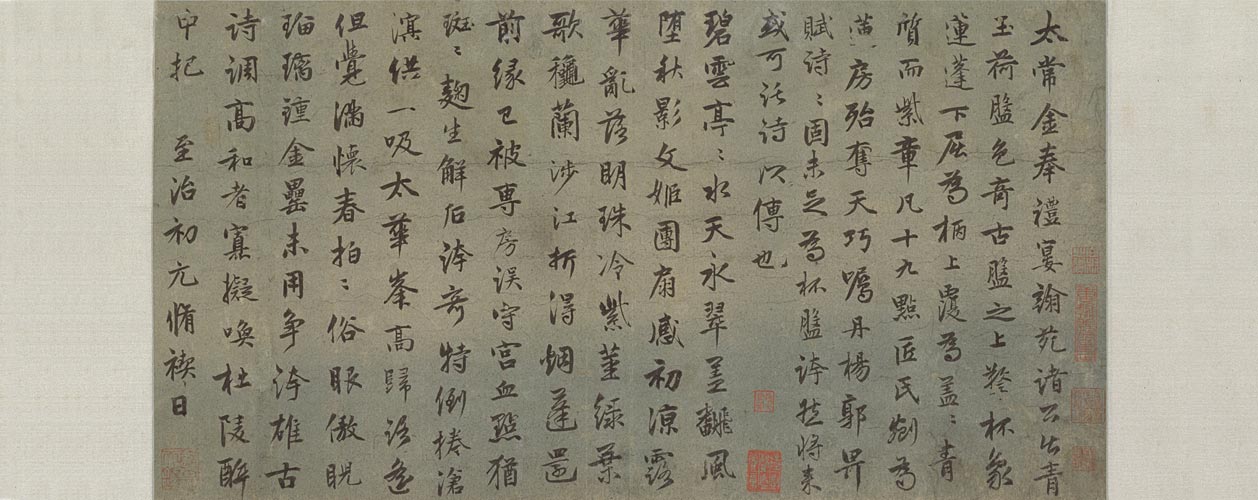 太常金奉禮宴翰苑諸公出青
玉荷盤色奇古盤之上鼇杯象
蓮蓬下屈為柄上覆為蓋〻青
質而紫章凡十九點匠氏剜為
蓮房殆奪天巧囑丹楊郭畀
賦詩〻固未足為杯盤誇然將來
或可託詩以傳也
碧雲亭〻水天永翠蓋翻風
墮秋影文姬團扇感初涼露
華亂落明珠冷紫莖綠葉
歌穠蘭涉江折得蜩蓬還
前緣已被專房誤守宮血點猶
斑〻麴生解后誇奇特倒捲滄
溟供一吸太華峯高歸路遙
但覺滿懷春拍〻俗眼傲睨
瑠璃鍾金罍未用爭誇雄古
詩調高和者寡擬喚杜陵酹
中把 至治初元脩禊日